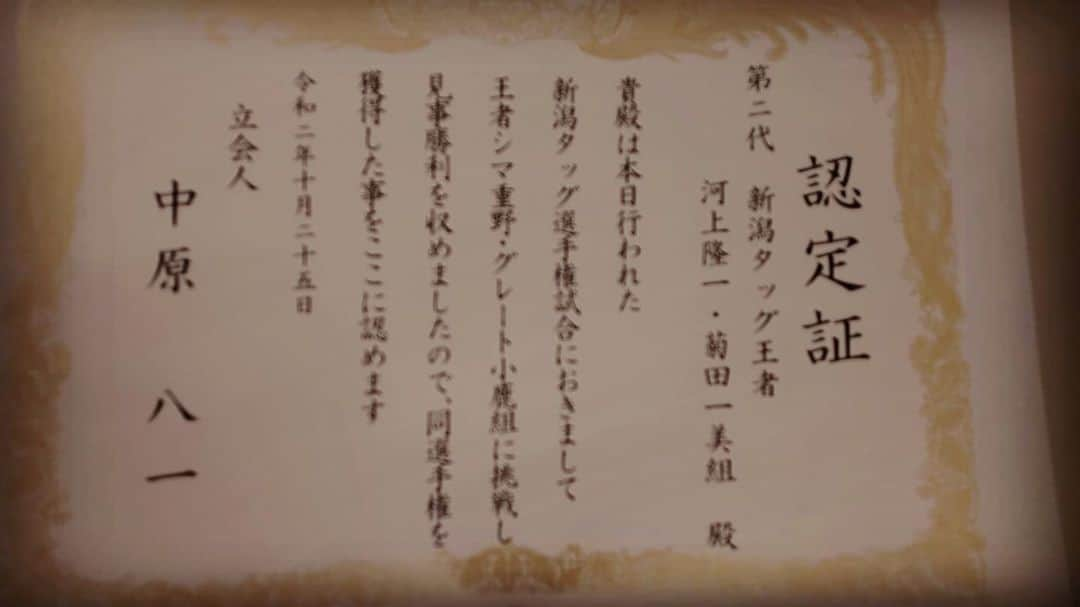 認定証
第二代 新潟タッグ王者
河上隆一・菊田一美組 殿
貴殿は本日行われた
新潟タッグ選手権試合におきまして
王者シマ重野・グレート小鹿組に挑戦し
見事勝利を収めましたので、同選手権を
獲得した事をここに認めます
令和二年十月二十五日
立会人
中原 八一